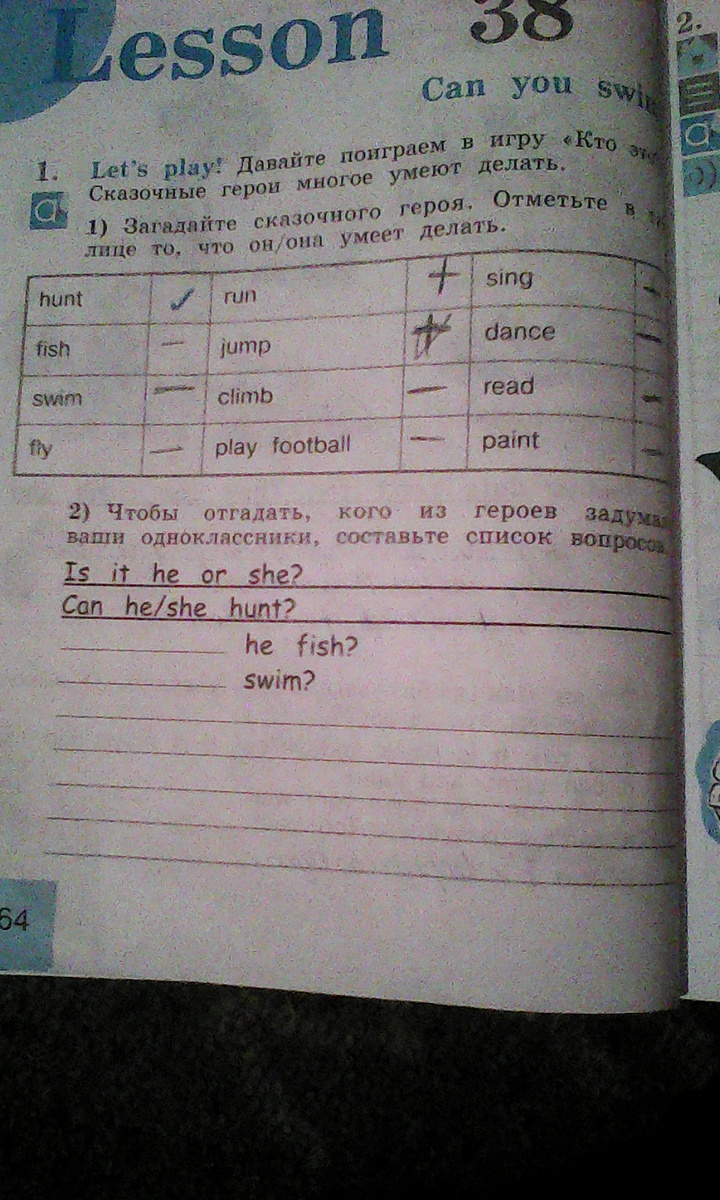 Lesson 38
Can you
1. Let's play! Давайте поиграем в игру «Кто
Сказочные герои многое умеют делать.
1) Загадайте сказочного героя. Отметьте в
лице то, что он/она умеет делать.
hunt ✓ run + sing –
fish – jump + dance –
swim – climb – read –
fly – play football – paint –
2) Чтобы отгадать, кого из героев
ваши одноклассники, составьте список вопросов
Is it he or she?
Can he/she hunt?
he fish?
swim?
64
2.